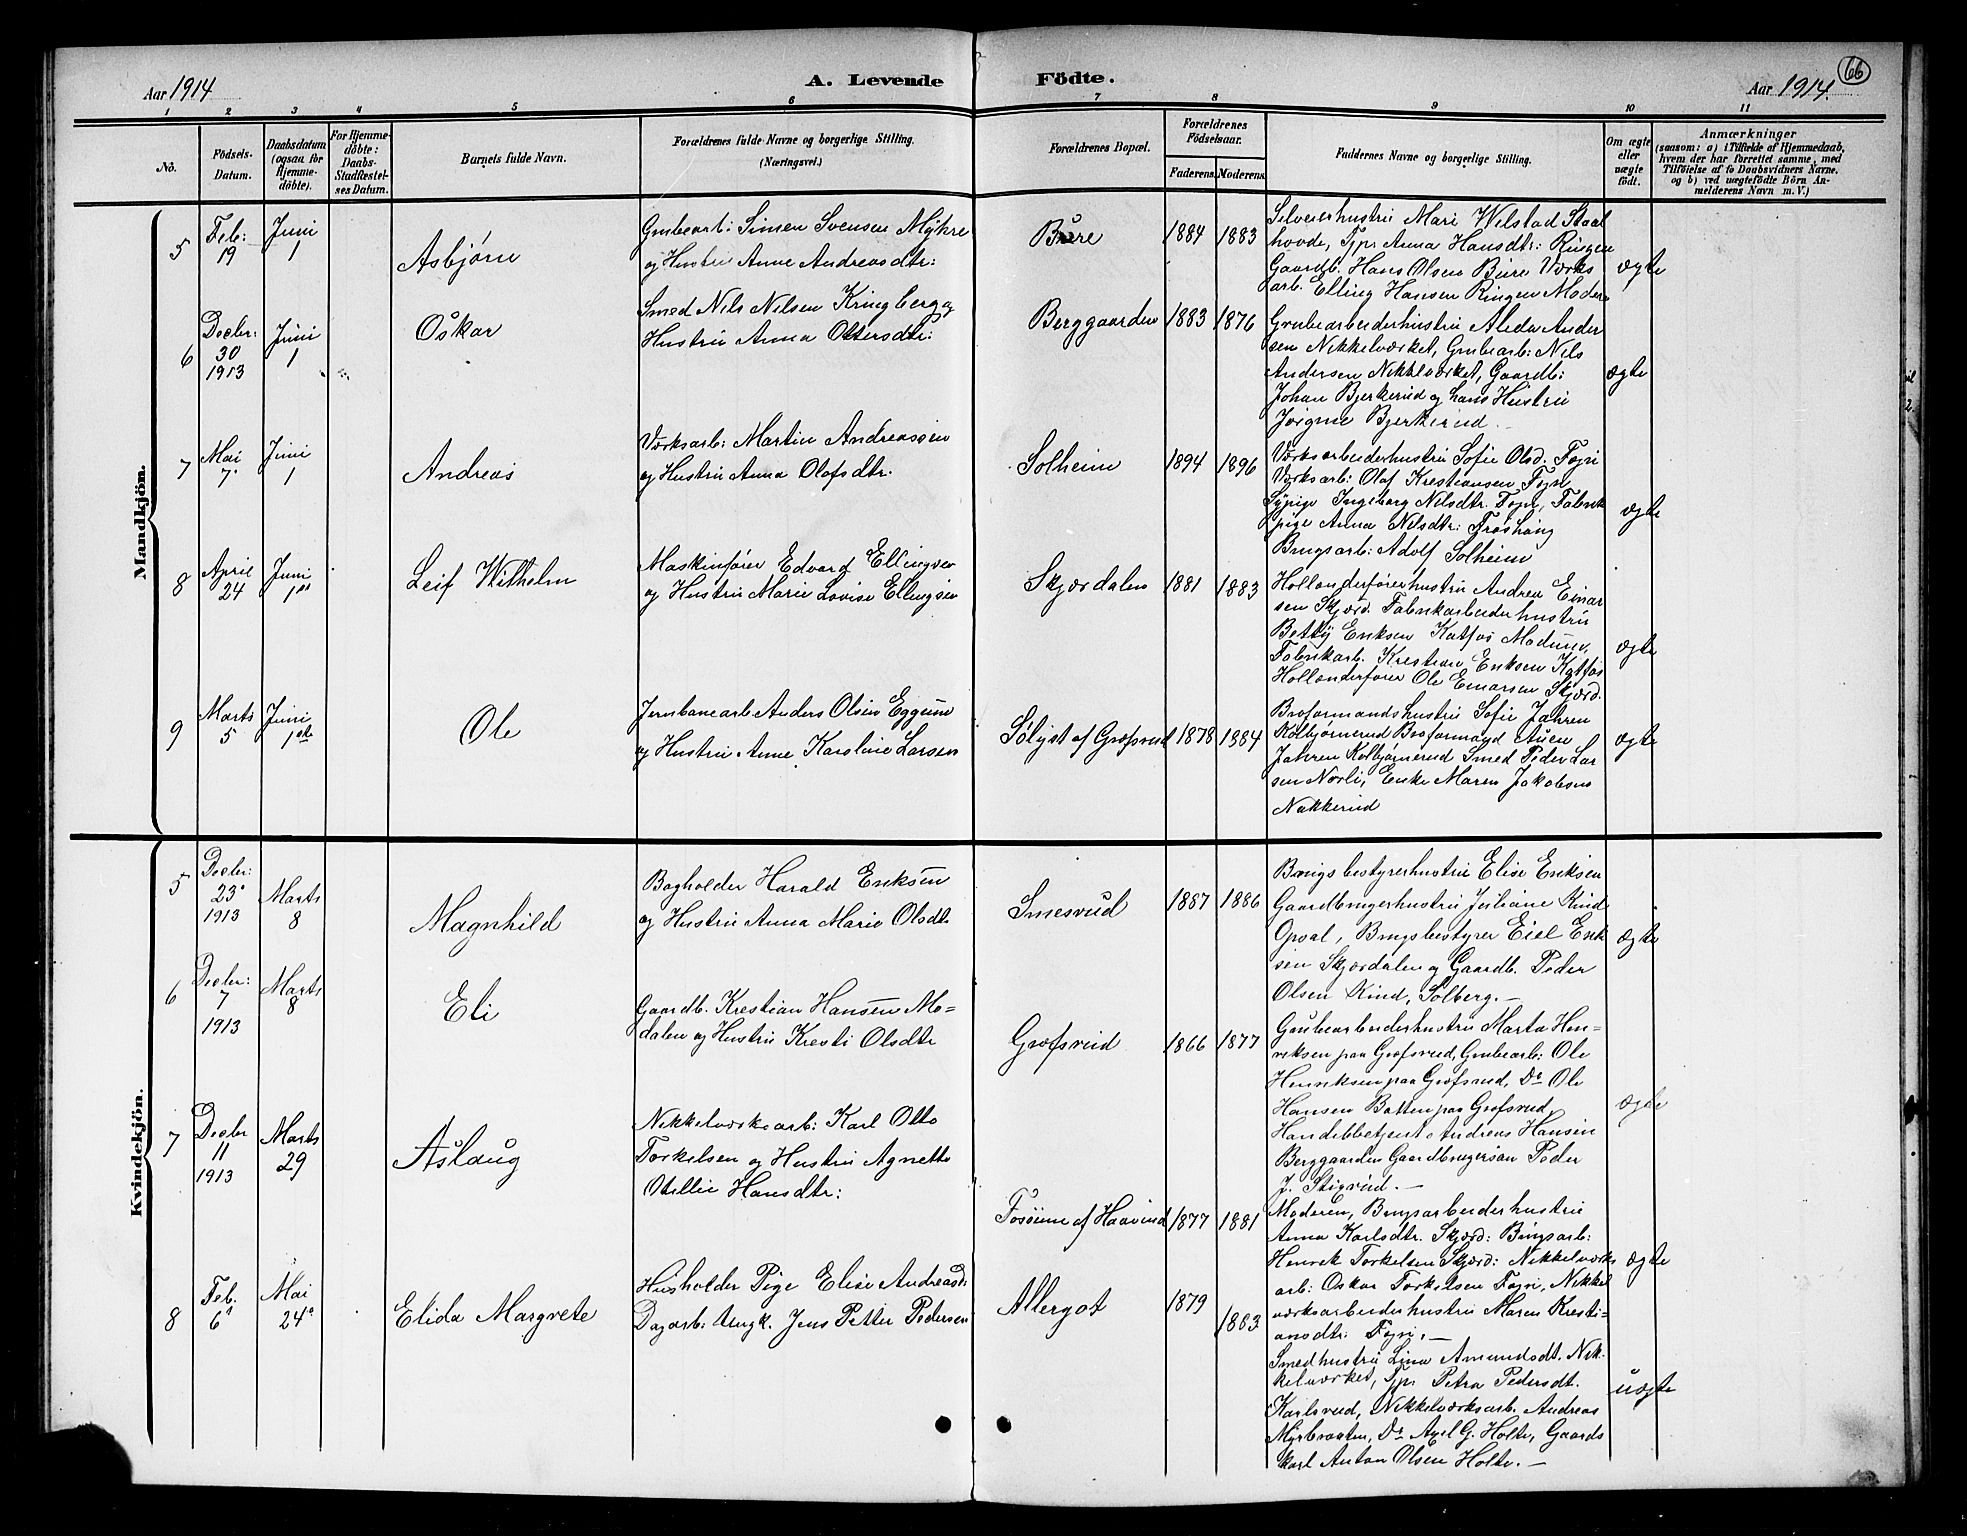 66
Aar 1914
A. Levende Födte.
Aar 1914.
1 2 3 4 5 6 7 8 9 10 11
No.
Födsels-
Datum.
Daabsdatum
(ogsaa for
Hjemme-
döbte).
For Hjemme-
döbte:
Daabs-
Stadfæstel-
ses Datum.
Barnets fulde Navn.
Forældrenes fulde Navne og borgerlige Stilling.
(Næringsvei.)
Forældrenes Bopæl.
Forældrenes
Födselsaar.
Faderens. Moderens.
Faddernes Navne og borgerlige Stilling.
Om ægte
eller
uægte
födt.
Anmærkninger
(saasom: a) i Tilfælde af Hjemmedaab,
hvem der har forrettet samme, med
Tilföielse af to Daabsvidners Navne,
og b) ved uægtefödte Börn An-
melderens Navn m. V.)
Mandkjön.
5
Feb:
19
Juni
1
Asbjørn
Grubearb: Simen Svensen Myhre
og Hustru Anne Andreasdtr:
Bure
1884 1883
Selveierhustru Mari Wilstad Staal
hovde, Tjp: Anna Hansdtr: Ringen
Gaardb. Hans Olsen Bure Værks
arb. Elling Hansen Ringen Moderen
ægte
6
Decbr:
30
1913
Juni
1
Oskar
Smed Nils Nilsen Kringberg og
Hustru Anna Ottersdtr:
Berggaarden
1883 1876
Grubearbeiderhustru Alida Ander
sen Nikkelværket, Grubearb: Nils
Andersen Nikkelværket, Gaardb:
Johan Bjerkerud og hans Hustru
Jørgine Bjerkerud.
ægte
7
Mai
7.
Juni
1
Andreas
Værksarb: Martin Andreassen
og Hustru Anna Olafsdtr.
Solheim
1894 1896
Værksarbeiderhustru Sofie Olsd. Fogn
Værksarb: Olaf Kristiansen Fogn
Sypige Ingeborg Nilsdtr. Fogn, Fabrik
pige Anna Nilsdtr: Froshaug
Brugsarb: Adolf Solheim
ægte
8
April
24
Juni
1ste
Leif Wilhelm
Maskinfører Edvard Ellingsen
og Hustru Marie Lovise Ellingsen
Skjærdalen
1881 1883
Hollænderførerhustru Andrea Einar
sen Skjærd. Fabrikarbeiderhustru
Betty Eriksen Katfos Modum,
Fabrikarb. Kristian Eriksen Katfos
Hollænderfører Ole Einarsen Skjærd.
ægte
9
Marts
5
Juni
1ste
Ole
Jernbanearb Anders Olsen Eggum
og Hustru Anne Karoline Larsen
Sølyst af Grøfsrud
1878 1884
Baformandshustru Sofie Jahren
Kolbjørnrud Baformand Auen
Jahren Kolbjørnrud Smed Peder Lar
sen Norli, Enke Maren Jakobsen
Nakkerud
ægte
Kvindekjön.
5
Decbr:
23
1913
Marts
8
Magnhild
Bogholder Harald Eriksen
og Hustru Anna Marie Olsdtr
Smesrud
1887 1886
Brugsbestyrerhustru Elise Eriksen
Gaardbrugerhustru Juliane Rind
Opsal, Brugsbestyrer Eiel Erik
sen Skjærdalen og Gaardb. Peder
Olsen Rind, Solberg. —
ægte
6
Decbr:
7
1913
Marts
8
Eli
Gaardb. Krestian Hansen Mo=
dalen og Hustru Kresti Olsdtr
Grøfsrud
1866 1877
Grubearbeiderhustru Marta Hen=
riksen paa Grøfsrud, Grubearb: Ole
Henriksen paa Grøfsrud, Do Ole
Hansen Botten paa Grøfsrud,
Handelsbetjent Andreas Hansen
Berggaarden Gaardbrugersøn Peder
J. Stigrud. —
ægte
7
Decbr
11
1913
Marts
29
Aslaug
Nikkelværksarb: Karl Otto
Torkelsen og Hustru Agnette
Otellie Hansdtr:
Fosoine af Haavind
1877 1881
Moderen, Brugsarbeiderhustru
Anna Karlsdtr. Skjærd: Brugsarb:
Henrik Torkelsen Skjærd: Nikkelværks
arb: Oskar Torkelsen Fogn, Nikkel
værksarbeiderhustru Maren Kresti=
ansdtr: Fogn. —
ægte
8
Feb.
6
Mai
24
Elida Margrete
Husholder Pige Elise Andreasd:
Dagarb: Ungk. Jens Petter Pedersen
Allergot
1879 1883
Smedhustru Lina Amundsdt. Nik-
kelværket, Tjp: Petra Pedersdt.
Karlsrud, Nikkelværksarb. Andreas
Myrbraaten, Do Axel G. Holte, Gaards
karl Anton Olsen Holte. —
uægte